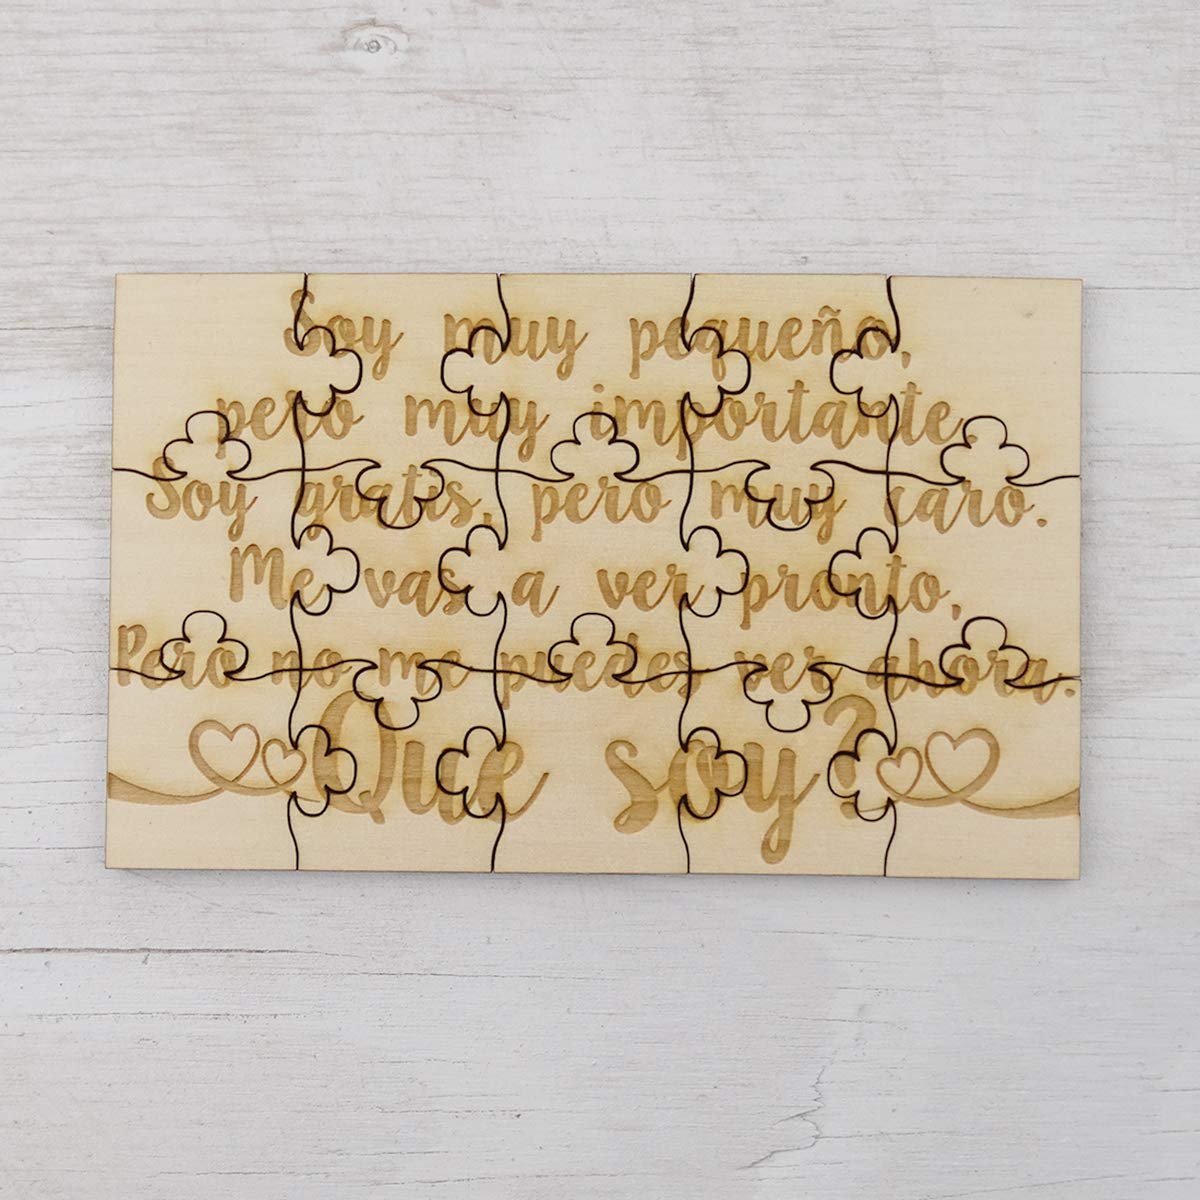 Soy muy pequeño,
pero muy importante.
Soy gratis, pero muy caro.
Me vas a ver pronto,
Pero no me puedes ver ahora.
Que soy?